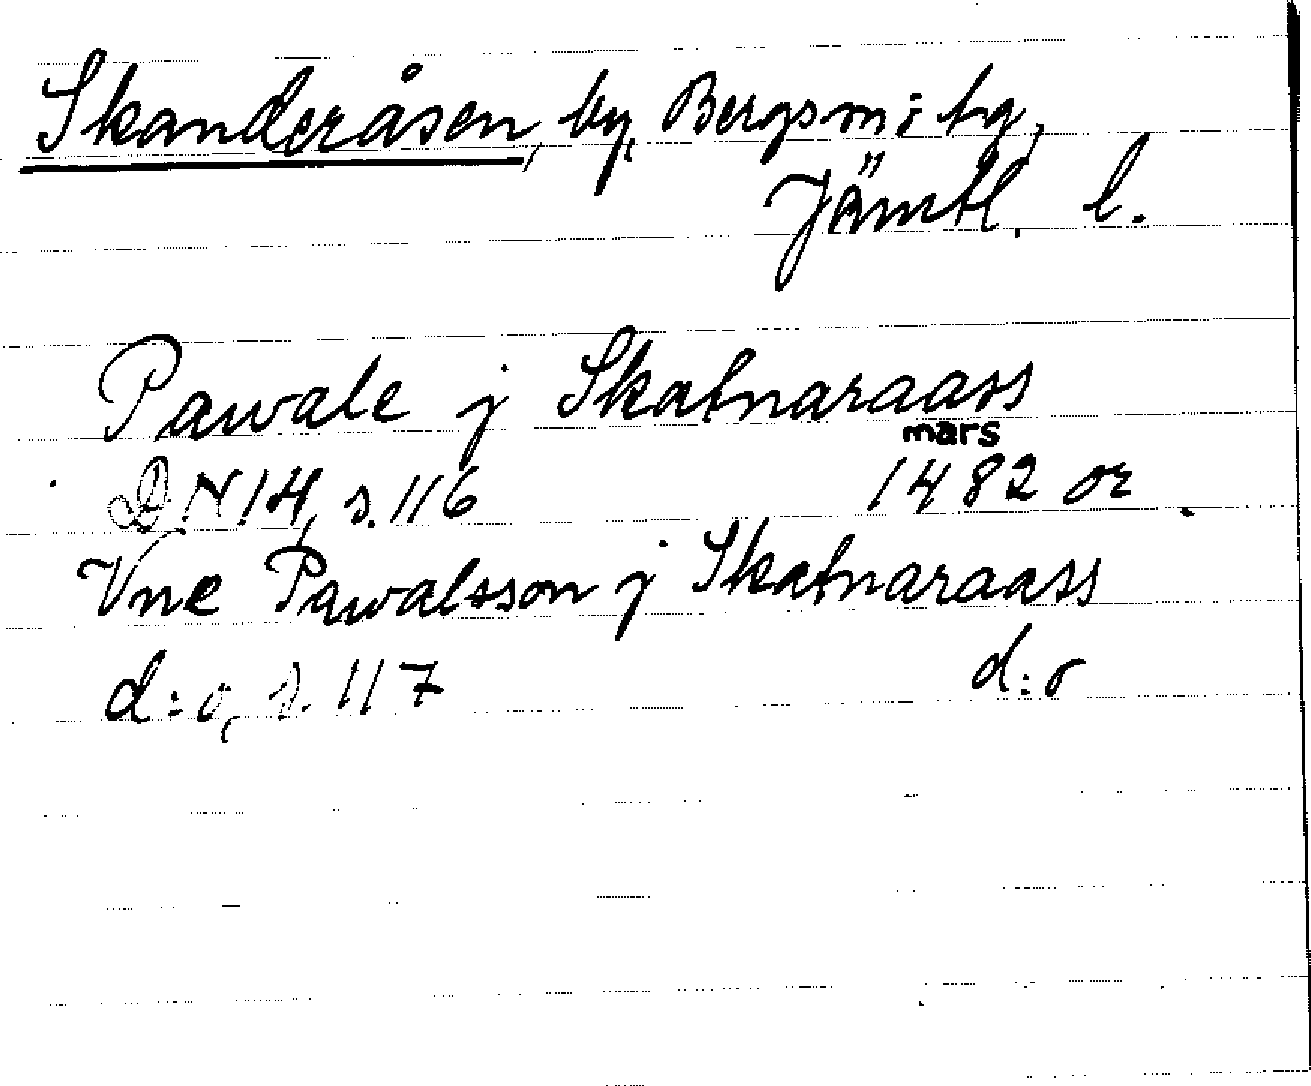 Skanderåsen, by, Bergs sn i hg,
Jämtl. l.
Pawale j Skatnaraass
mars
DN 14, s. 116 1482 or
Vne Pawalsson j Skatnaraass
d:o, s. 117 d:o